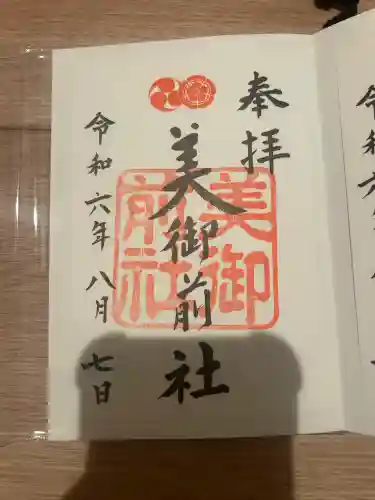 奉拝
美御前社
美御
前社
令和六年 八月 七日
令和六